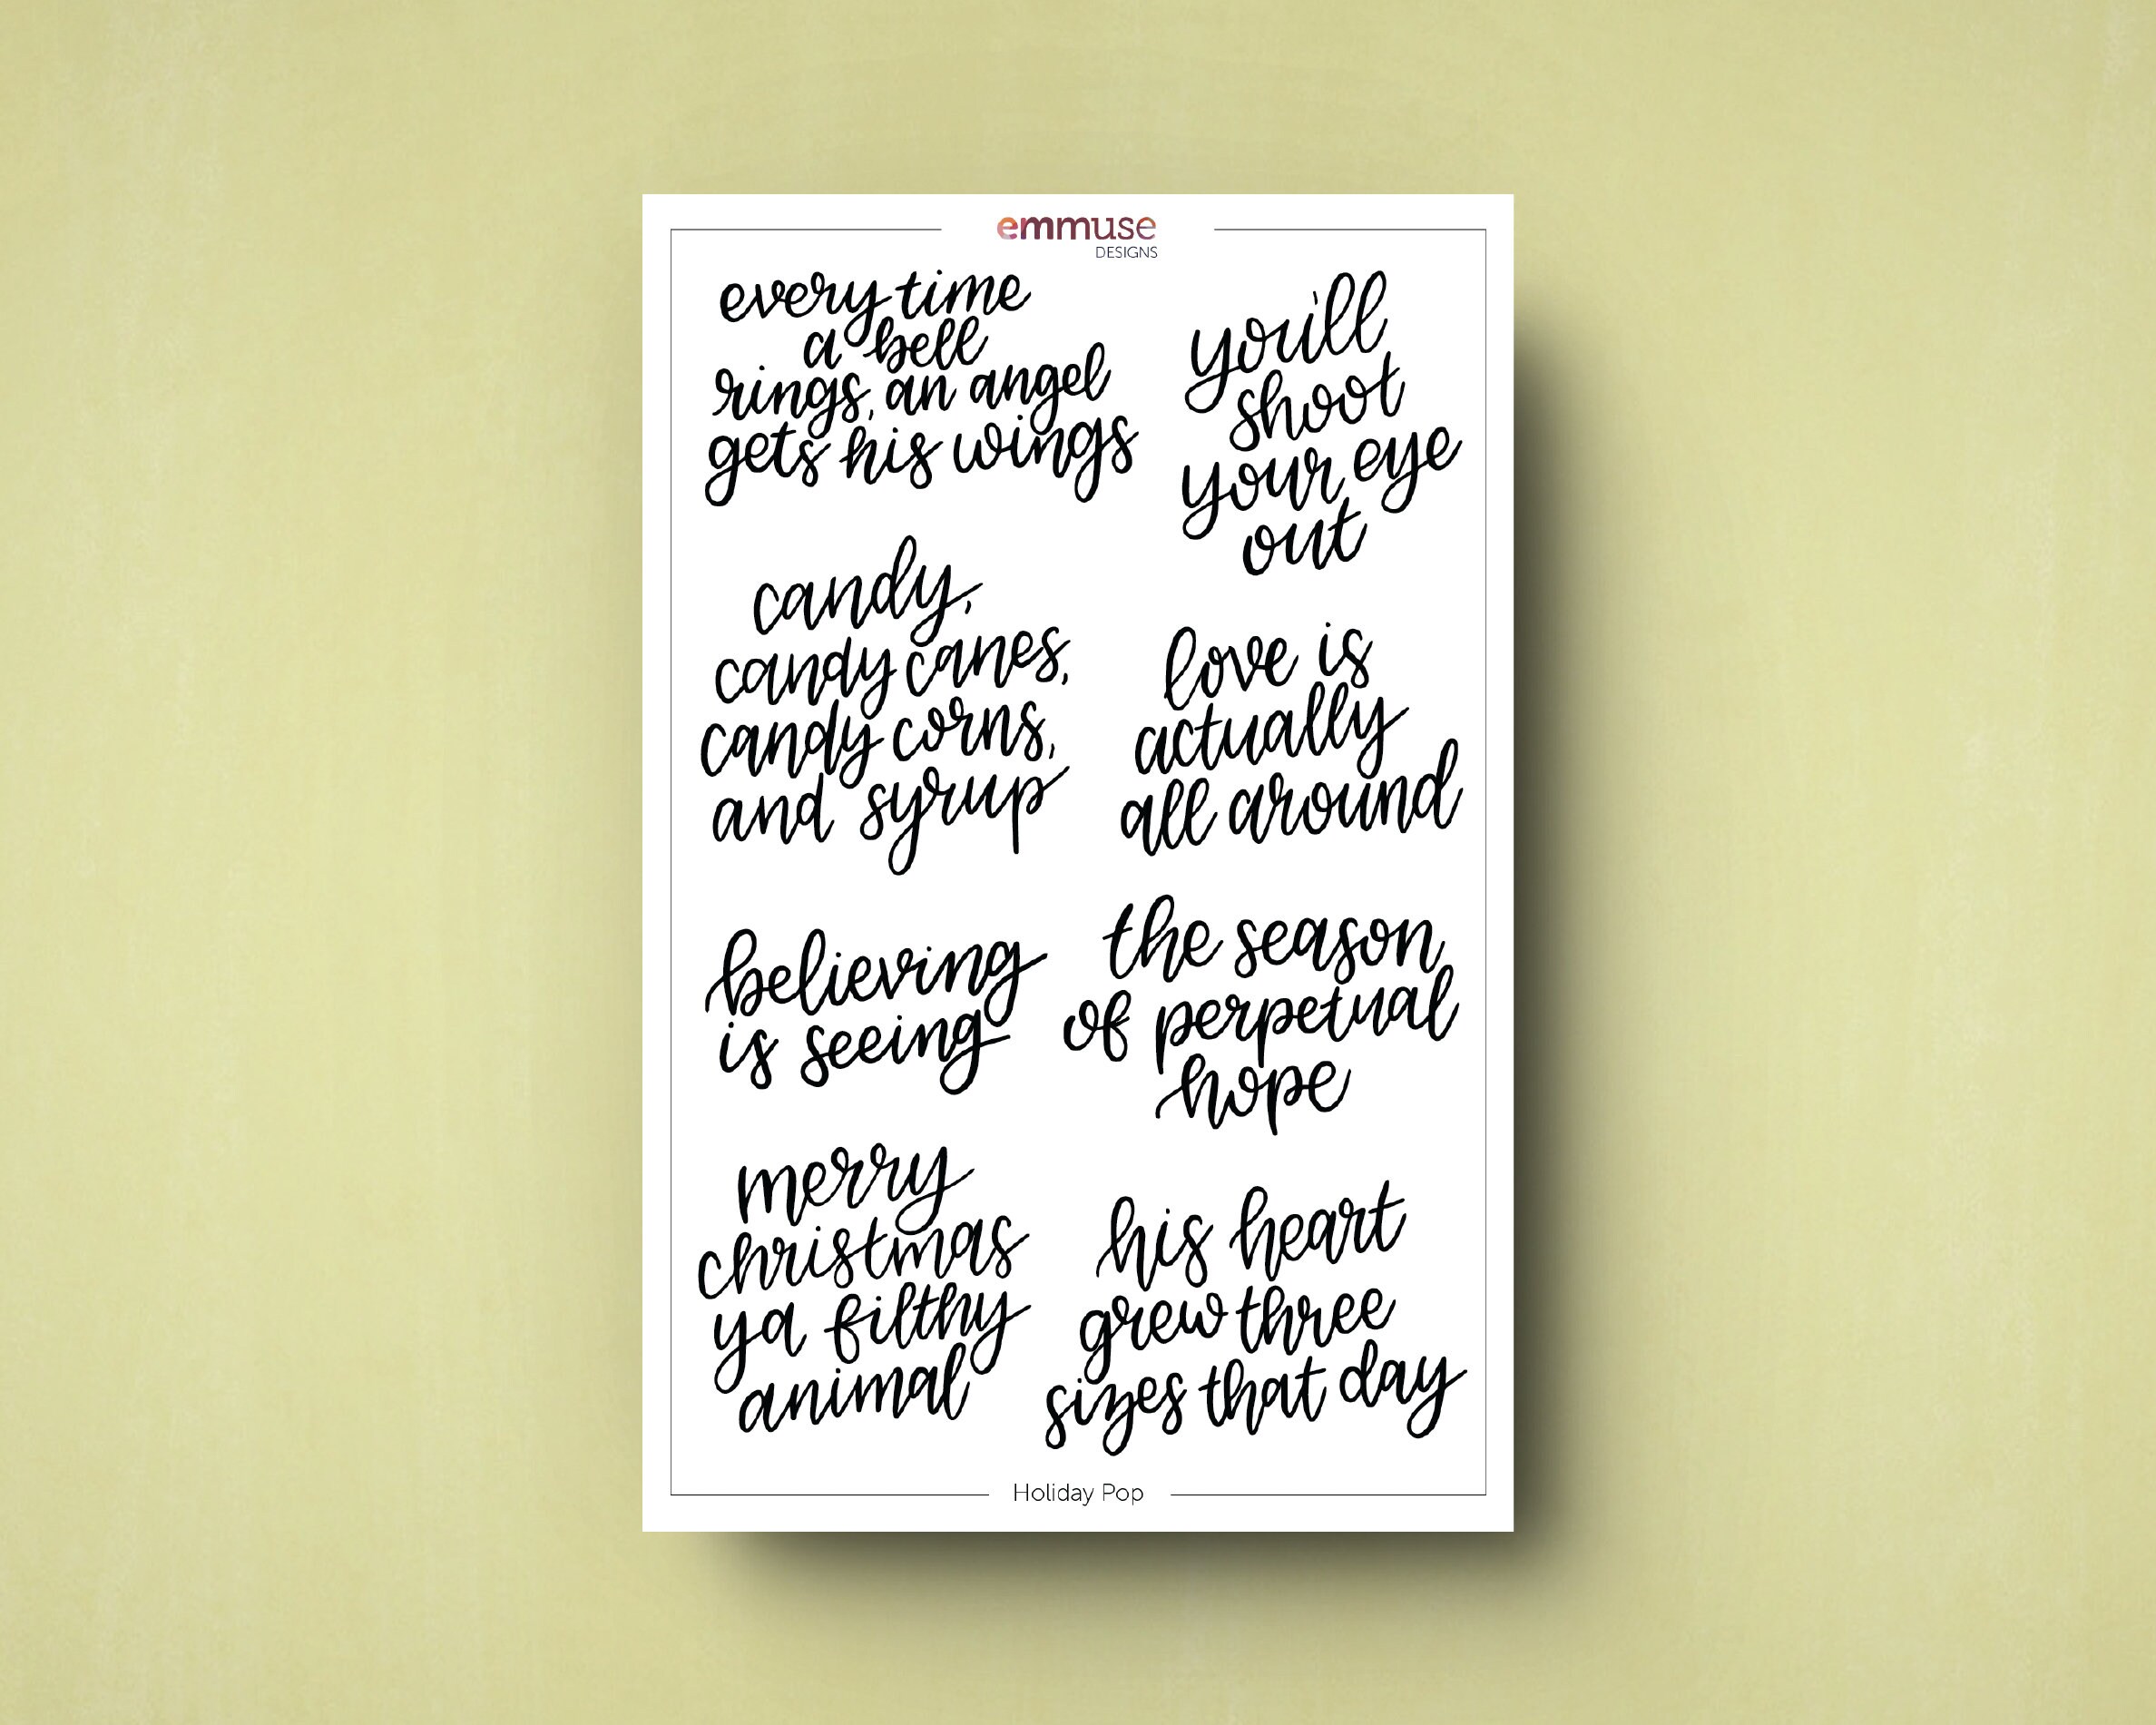 emmuse
DESIGNS
every time
a bell
rings, an angel
gets his wings
you'll
shoot
your eye
out
candy,
candy canes,
candy corns,
and syrup
love is
actually
all around
believing
is seeing
the season
of perpetual
hope
merry
christmas
ya filthy
animal
his heart
grew three
sizes that day
Holiday Pop